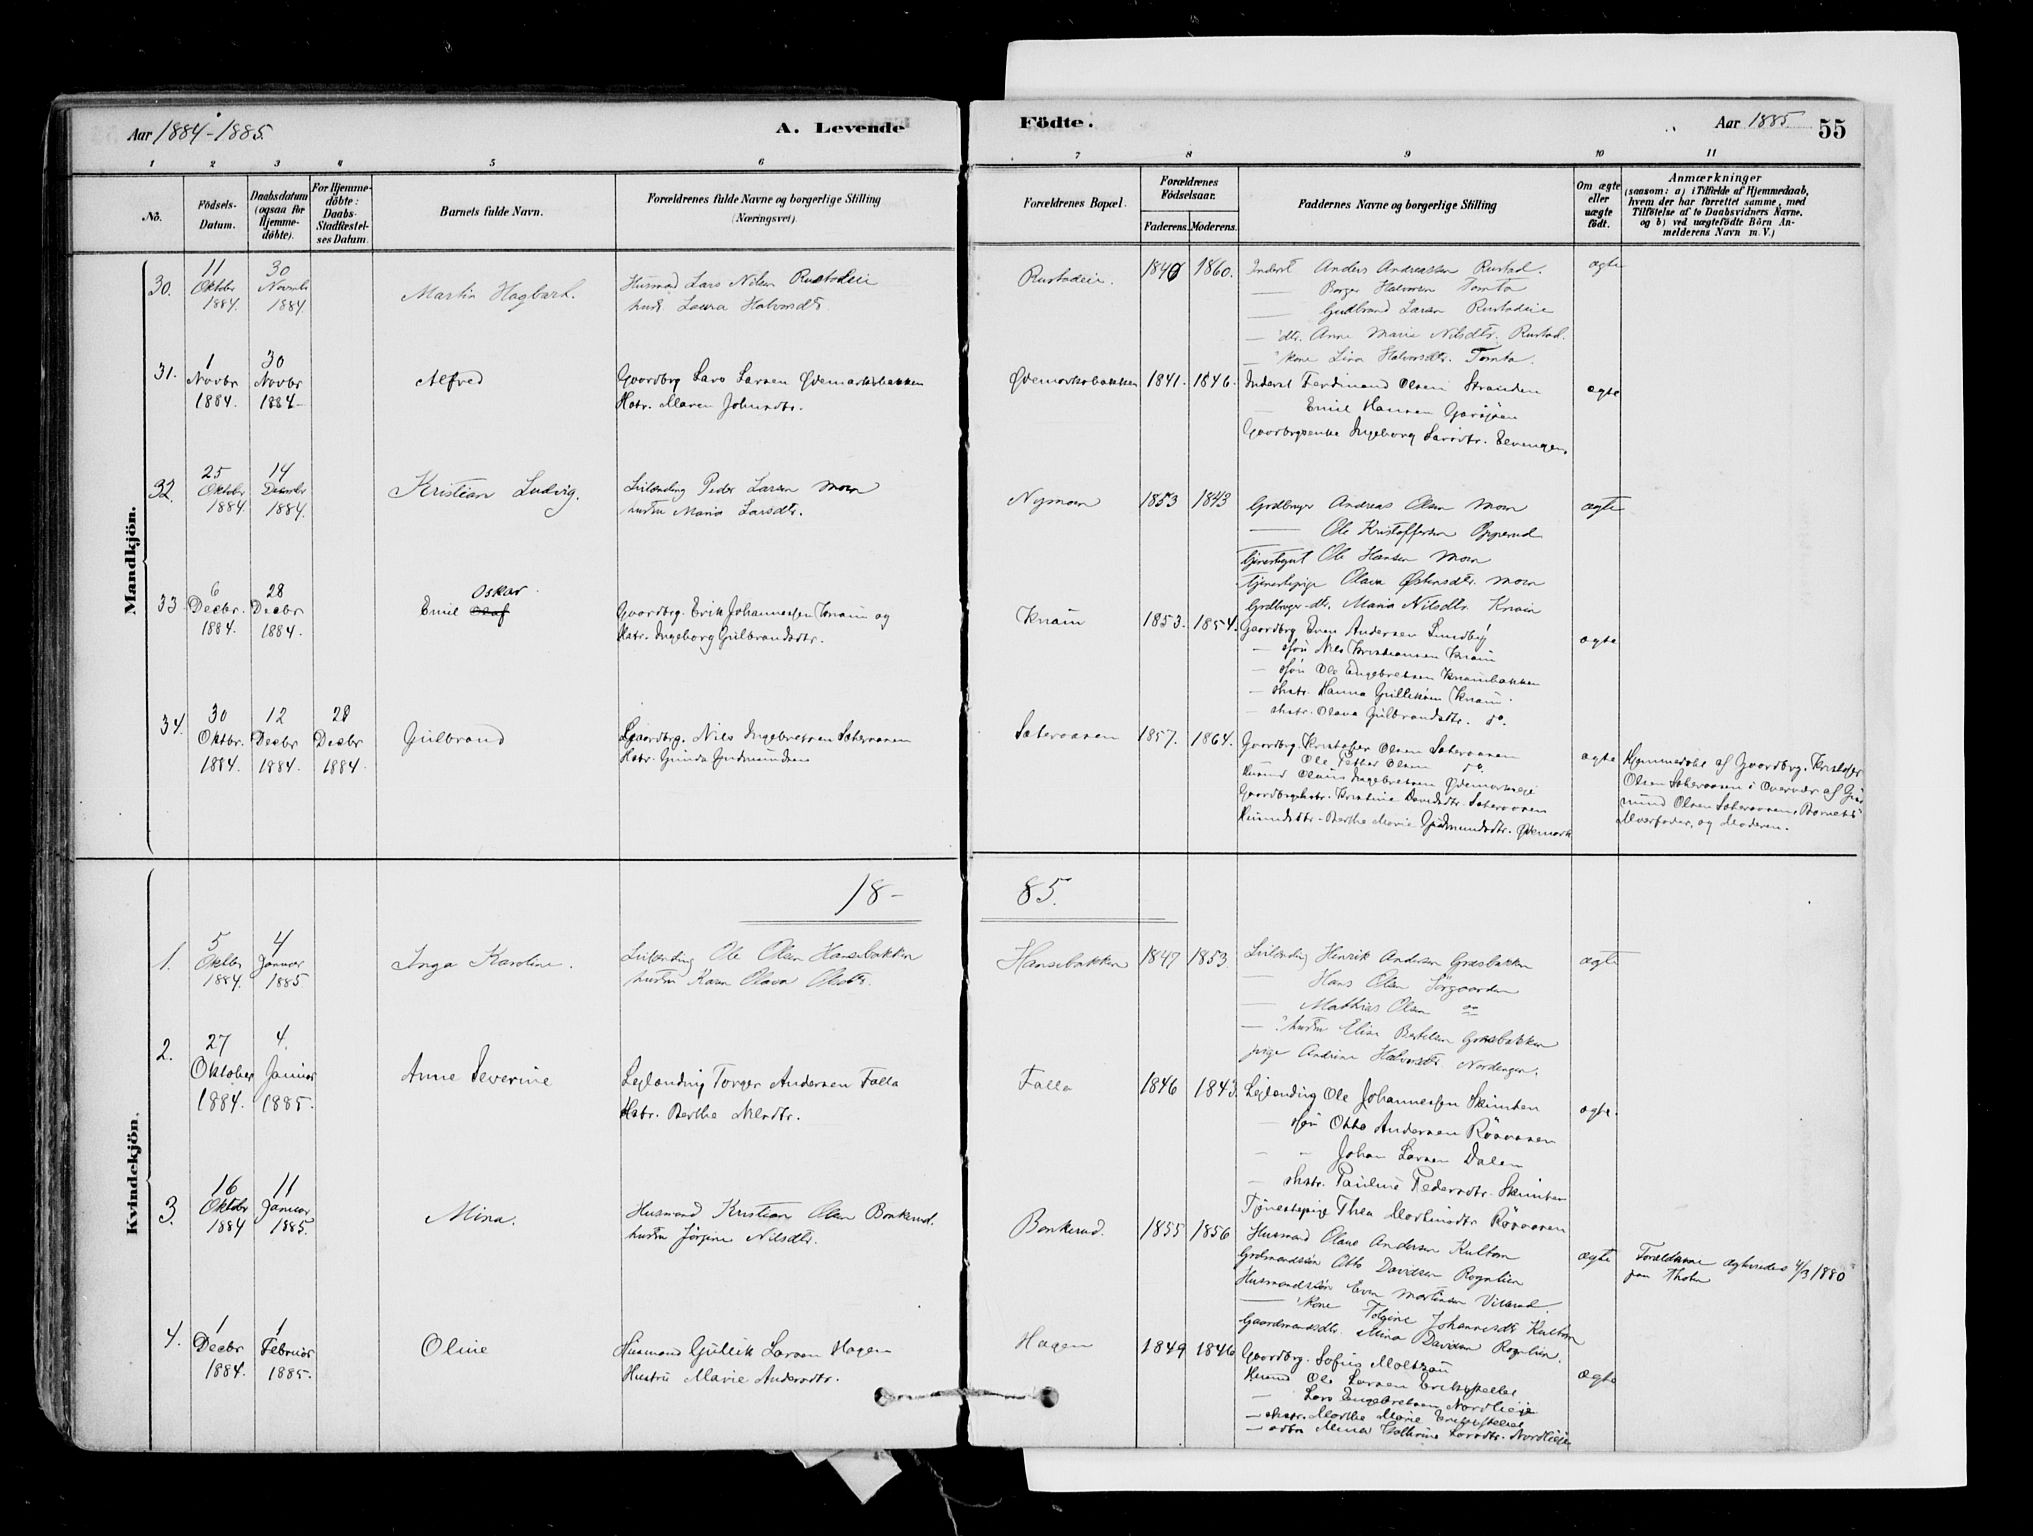 Aar 1884-1885.
A. Levende
Födte.
Aar 1885. 55
1 2 3 4 5 6 7 8 9 10 11
No.
Födsels-
Datum.
Daabsdatum
(ogsaa for
Hjemme-
döbte).
For Hjemme-
döbte:
Daabs-
Stadfæstel-
ses Datum.
Barnets fulde Navn.
Forældrenes fulde Navne og borgerlige Stilling
(Næringsvei).
Forældrenes Bopæl.
Forældrenes
Födselsaar.
Faderens. Moderens.
Faddernes Navne og borgerlige Stilling
Om ægte
eller
uægte
födt.
Anmærkninger
(saasom: a) i Tilfælde af Hjemmedaab,
hvem der har forrettet samme, med
Tilföielse af to Daabsvidners Navne,
og b) ved uægtefödte Börn An-
melderens Navn m. V.)
Mandkjön.
30. 11 Oktbr 1884. 30 Novmb 1884. Martin Hagbart.
Husmd Lars Nilsen Rustadeie
hust. Laura Halvorsdtr.
Rustadeie. 1846 1860.
Inderst Anders Andreassen Rustad.
— Borger Halvorsen Tomta
— Gudbrand Larsen Rustadeie
— dtr. Anne Marie Nilsdtr. Rustad.
— kone Lina Halvorsdtr. Tomta.
ægte
31. 1 Novbr 1884. 30 Novbr 1884 Alfred
Gaardbrg Lars Larsen Ødemarksbakken
Hstr. Maren Johnsdtr.
Ødemarksbakken 1841. 1846.
Inderst Ferdinand Olsen Stranden
— Emil Hansen Garsjøen
Gaardbrgsenke Ingeborg Larsdtr. Elvengen.
ægte
32. 25 Oktobr 1884 14 Decmbr 1884. Kristian Ludvig.
Leilænding Peder Larsen Moen
hustru Maria Larsdtr.
Nymoen 1853 1843
Grdbruger Andreas Olsen Moen
— Ole Kristoffersen Opperud
Tjenestegut Ole Hansen Moen
Tjenestepige Olava Østensdtr. Moen
Grdbruger dtr. Maria Nilsdtr. Knain
ægte
33 6 Decbr. 1884. 28 Decbr 1884. Emil Olaf Oskar
Gaardbrg. Erik Johannessen Knain og
Hstr. Ingeborg Gulbrandsdtr.
Knain 1853. 1854.
Gaardbrg Even Andersen Lundby
— søn Nils Kristiansen Knain
— søn Ole Engebretsen Knainbakken
— hstr. Hanna Gulliksen Knain.
— hstr. Olava Gulbrandsdtr. do.
ægte
34. 30 Oktbr. 1884. 12 Decbr 1884. 28 Decbr 1884. Gulbrand
Gaardbrg. Nils Ingebretsen Sæteraasen
Hstr. Gunda Gudmundsen
Sæteraasen 1857. 1864.
Gaardbrg. Kristofer Olsen Sæteraasen
Ole Petter Olsen do.
Husmd Olaus Ingebretsen Ødemarkseie
Gaardbrgshstr. Kristine Davidsdtr. Sæteraasen
Husmdsdtr. Berthe Marie Gudmundsdtr. Ødemark
ægte
Hjemmedøbt af Gaardbrg. Kristofer
Olsen Sæteraasen i Overvær af Gud
mund Olsen Sæteraasen, Barnets
Morfader, og Moderen.
18-85.
Kvindekjön.
1. 5 Oktbr 1884. 4 Januar 1885 Inga Karoline.
Leilænding Ole Olsen Hansebakken
hustru Karen Olava Olsdtr.
Hansebakken 1847 1853.
Leilænding Henrik Andersen Græsbakken
— Hans Olsen Sørgaarden
— Mathias Olsen do
— hustru Elise Bertelsen Græsbakken
pige Andrine Halvorsdtr. Nordengen.
ægte
2. 27 Oktober 1884. 4. Januar 1885. Anne Severine
Leilænding Torger Andersen Falla
Hstr. Berthe Olsdtr.
Falla 1846 1843.
Leilænding Ole Johannessen Skimten
— søn Otto Andersen Røsaasen
— " Johan Larsen Dalen
— hstr. Pauline Pedersdtr. Skimten
Tjenestepige Thea Mortinsdtr Røsaasen
ægte.
3. 16 Oktbr 1884 11 Januar 1885. Mina.
Husmand Kristian Olsen Bonkerud.
hustru Jørgine Nilsdtr.
Bonkerud. 1855 1856
Husmand Olaus Andersen Kulton
Grdmandssøn Otto Davidsen Rognlien
Husmandssøn Even Mortinsen Vilberud.
— kone Tolgine Johannesdtr Kulton
Gaardmandsdtr. Mina Davidsen Rognlien.
ægte
Forældrene ægteviedes 4/3 1880
paa Thoten
4. 1 Decbr 1884. 1 Februar 1885. Oline
Husmand Gullik Larsen Hagen
Hustru Marie Andersdtr.
Hagen 1849 1846
Gaardbrg. Sofus Moltzau
Husmd Ole Larsen Eriksstellet
— Lars Engebretsen Nordlieeie
— hstr. Marthe Marie Eriksstellet
— dtr Mina Kathrine Larsdtr. Nordlieeie
ægte